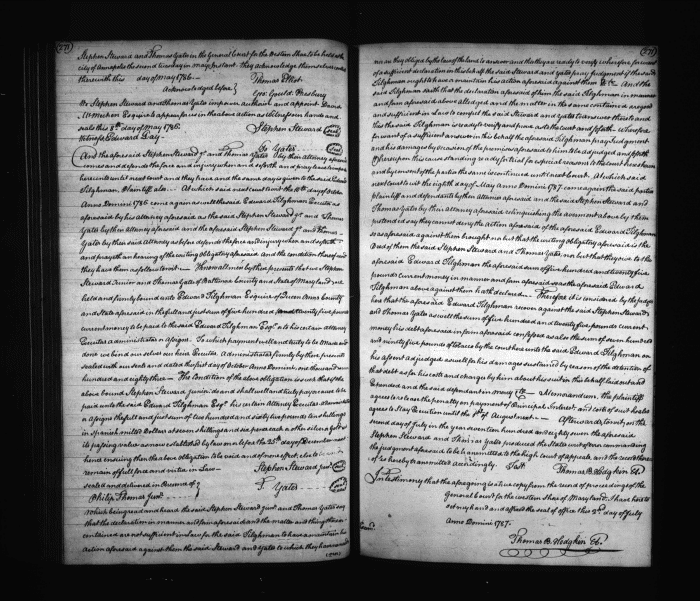 (270)
Stephen Steward and Thomas Yates in the General Court for the Western Shore to be held at the
city of Annapolis the second tuesday in May Instant. They acknowledge themselves
therein this day of May 1786.
Thomas Elliot
Acknowledged before
Geo: Gould Presbury
We Stephen Steward and Thomas Yates impower authorise and appoint David
McMechen Esquire to appear for us in the above action as Witness our hands and
seals this 8th day of May 1786.
Stephen Steward (seal)
Witness Edward Day
T. Yates (seal)
And the aforesaid Stephen Steward Jr. and Thomas Yates by their Attorney aforesaid
comes and defends the force and injury when and so forth and pray leave to imparl
herein until next court and they have and the same day is given to the said Edward
Tilghman Plaintiff also. At which said next court to wit the 10th day of October
Anno Domini 1786 come again as well the said Edward Tilghman Esquire
aforesaid by his attorney aforesaid as the said Stephen Steward Jr. and Thomas
Yates by their attorney aforesaid and the aforesaid Stephen Steward Jr. and Thomas
Yates by their said attorney as before defends the force and injury when and so forth
and prayeth an hearing of the writing obligatory aforesaid and the condition thereof and
they have them as follows to wit. Know all men by these presents that we Stephen
Steward Junior and Thomas Yates of Baltimore County and State of Maryland are
held and firmly bound unto Edward Tilghman Esquire of Queen Anns County
and State aforesaid in the full and just sum of five hundred and twenty five pounds
current money to be paid to the said Edward Tilghman Esqr. or to his certain attorney
Executors administrators or assigns. To which payment well and truly to be made and
done we bind our selves our heirs Executors Administrators firmly by these presents
sealed with our seals and dated this first day of October Anno Domini one thousand seven
hundred and eighty three. The Condition of the above obligation is such that if the
above bound Stephen Steward junior do and shall well and truly pay or cause to be
paid unto the said Edward Tilghman Esqr. his certain attorney Executors administrators
or assigns the full and just sum of two hundred and sixty two pounds ten shillings
in Spanish milled Dollars at seven shillings and six pence each or other silver or gold
its passing value as now established by law on or before the 25th day of December next
hend ensuing then the above obligation to be void and of none effect else to
remain of full force and virtue in Law
Stephen Steward junr. (seal)
sealed and delivered in Presence of
Philip Thomas Junr.
T. Yates (seal)
Which being read and heard the said Stephen Steward Junr. and Thomas Yates say
that the declaration in manner and form aforesaid and the matter and things therein
contained are not sufficient in Law for the said Tilghman to have or maintain his
action aforesaid against them the said Steward and Yates to which they have no
(271)
need nor are they obliged by the laws of the land to answer and that they are ready to verify wherefore for want
of a sufficient declaration in this behalf the said Steward and Yates pray Judgment if the said
Tilghman ought to have or maintain his action aforesaid against them &c. And the
said Tilghman saith that the declaration aforesaid of him the said Tilghman in manner
and form aforesaid above alledged and the matter in the same contained are good
and sufficient in Law to compel the said Steward and Yates to answer thereto and
this the said Tilghman is ready to verify and prove as to the Court and so forth. Wherefore
for want of a sufficient answer in this behalf the aforesaid Tilghman prays Judgment
and his damages by occasion of the premises aforesaid to him to be adjudged and so forth
Whereupon this cause standing ready for trial for especial reasons to the court here shewn
and by consent of the parties the same is continued until next Court. At which said
next court to wit the eighth day of May Anno Domini 1787 come again the said parties
plaintiff and defendants by their Attornies aforesaid and the said Stephen Steward and
Thomas Yates by their Attorney aforesaid relinquishing the averment above by them
pretended say they cannot deny the action aforesaid of the aforesaid Edward Tilghman
so as aforesaid against them brought nor but that the writing obligatory aforesaid is the
Deed of them the said Stephen Steward and Thomas Yates nor but that they owe to the
aforesaid Edward Tilghman the aforesaid sum of five hundred and twenty five
pounds current money in manner and form aforesaid as the aforesaid Edward
Tilghman above against them hath declared. Therefore it is considered by the judges
here that the aforesaid Edward Tilghman recover against the said Stephen Steward
and Thomas Yates as well the sum of five hundred and twenty five pounds current
money his debt aforesaid in form aforesaid confessed as also the sum of seven hundred
and ninety five pounds of tobacco by the court here unto the said Edward Tilghman on
his assent adjudged as well for his damages sustained by reason of the detention of
that debt as for his costs and charges by him about his suit in this behalf laid out and
Expended and the said defendants in mercy &c. Memorandum, the plaintiff
agrees to release the penalty on payment of Principal Interest and costs of suit he also
agrees to stay Execution until the 1st of August next. Afterwards, to wit, on the
second day of July in the year seventeen hundred and eighty seven the aforesaid
Stephen Steward and Thomas Yates produced the States writ of error commanding
the Judgment aforesaid to be transmitted to the high court of appeals and the record
is hereby transmitted accordingly. Test
Thomas B. Hodgkin Clk.
In testimony that the aforegoing is a true copy from the record of proceedings of the
General Court for the western shore of Maryland I have hereto
set my hand and affixed the seal of office this 2d day of July
Anno Domini 1787.
Thomas B. Hodgkin Clk.